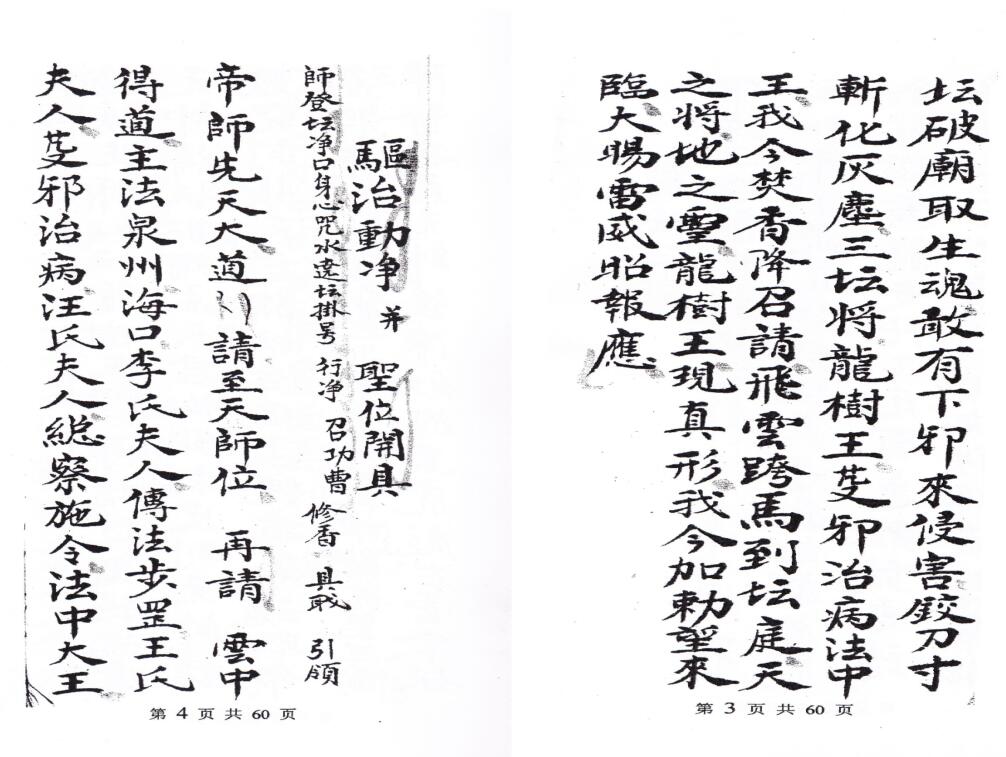 坛破廟取生魂敢有下邪來侵害鉸刀寸
斬化灰塵三坛将龍樹王芟邪治病法中
王我今焚香降召請飛雲跨馬到坛庭天
之将地之靈龍樹王現真形我今加勅望來
臨大賜雷威昭報應
第 3 页 共 60 页
驅治動净 并 聖位開具
師登坛净口身心咒水遶坛掛号 行净 召功曹 修香 具戢 引領
帝師先天大道 請至天師位 再請 雲中
得道主法泉州海口李氏夫人傳法步罡王氏
夫人芟邪治病汪氏夫人総察施令法中大王
第 4 页 共 60 页